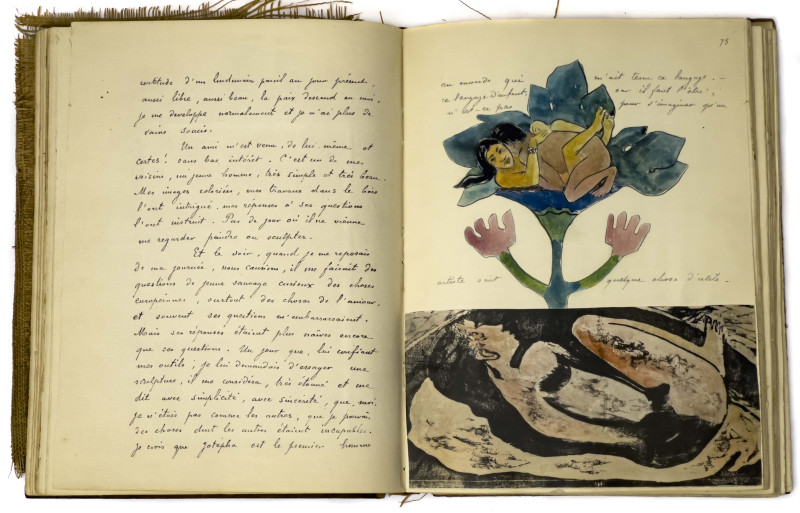 certitude d'un lendemain pareil au jour présent,
aussi libre, aussi beau, la paix descend en moi;
je me developpe normalement et je n'ai plus de
vains soucis.
Un ami m'est venu, de lui-même et
certes! sans bas intérêt. C'est un de mes
voisins, un jeune homme, très simple et très beau.
Mes images coloriées, mes travaux dans le bois
l'ont intrigué, mes réponses à ses questions
l'ont instruit. Pas de jour où il ne vienne
me regarder peindre ou sculpter.
Et le soir, quand je me reposais
de ma journée, nous causions, il me faisait des
questions de jeune sauvage curieux des choses
européennes, surtout des choses de l'amour
et souvent ses questions m'embarrassaient.
Mais ses réponses étaient plus naïves encore
que ses questions. Un jour que, lui confiant
mes outils, je lui demandais d'essayer une
sculpture, il me considéra, très étonné et me
dit avec simplicité, avec sincérité, que, moi,
je n'étais pas comme les autres, que je pouvais
des choses dont les autres étaient incapables.
Je crois que Jotepha est le premier homme
75
au monde qui m'ait tenu ce langage. —
ce langage d'enfant, car il faut l'être,
n'est-ce pas pour s'imaginer qu'un
artiste soit quelque chose d'utile —